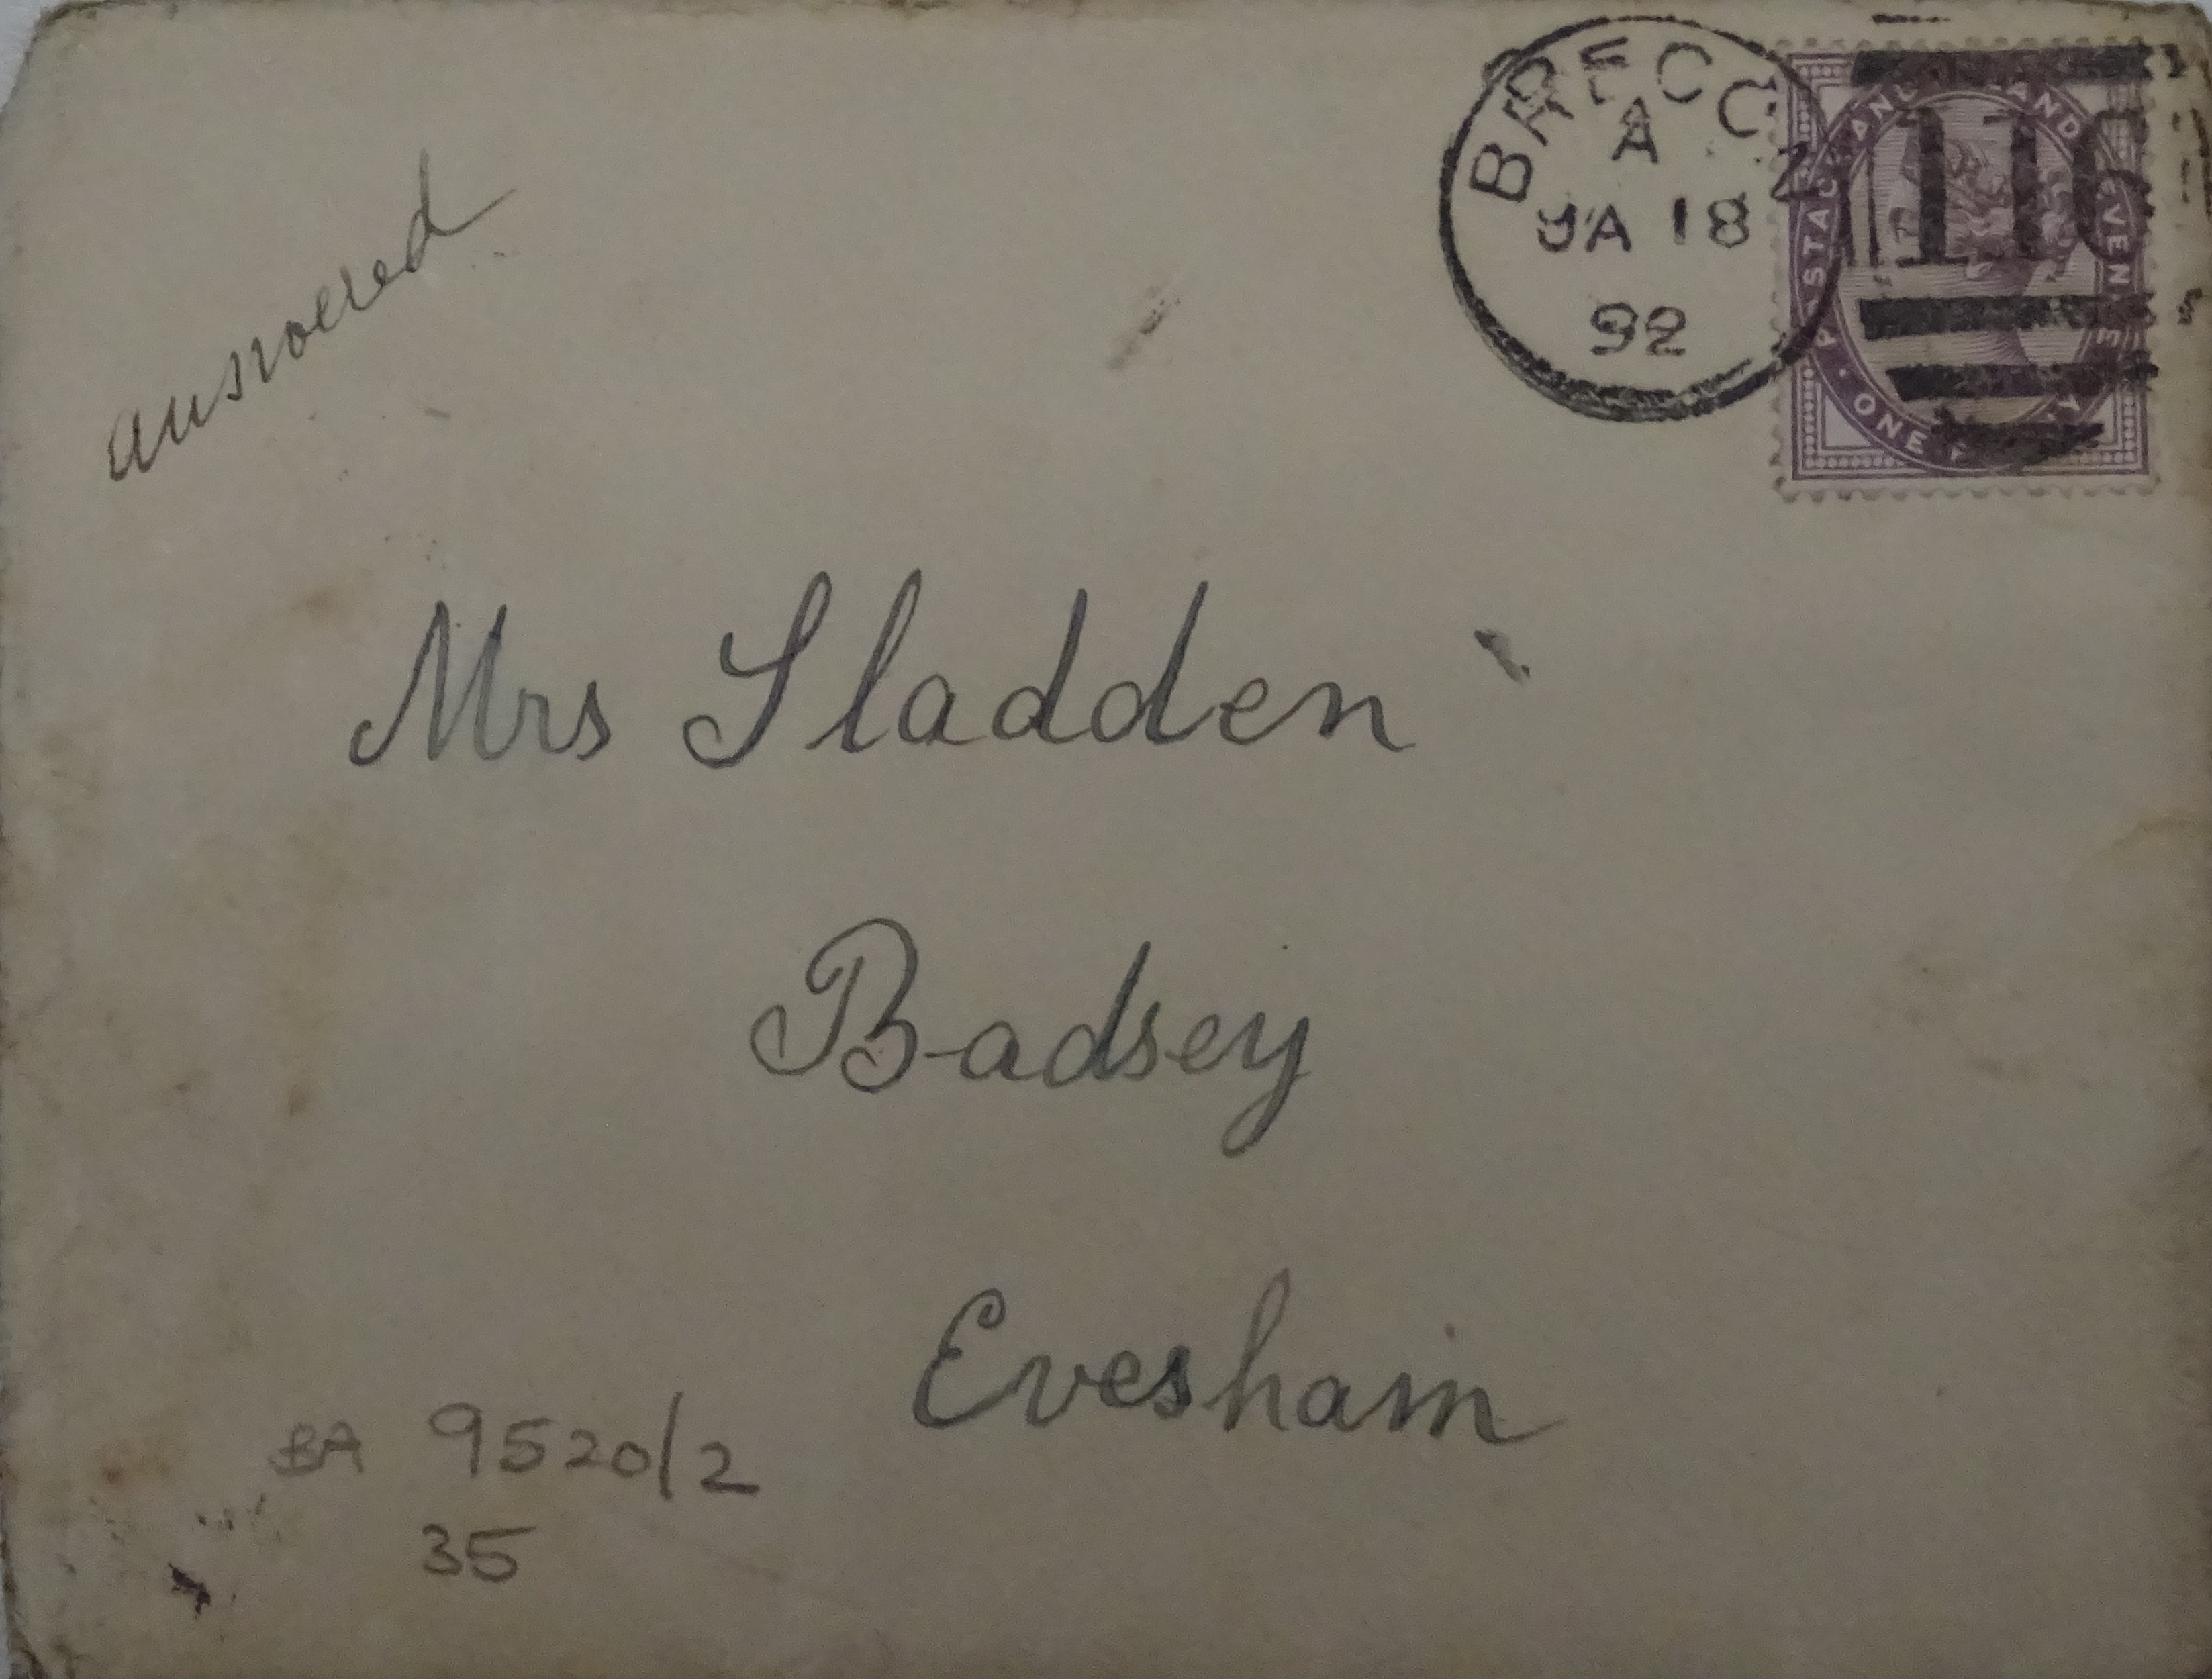 answered
BRECON
A
JA 18
92
116
POSTAGE AND REVENUE
ONE
Mrs Sladden
Badsey
Evesham
BA 9520/2
35